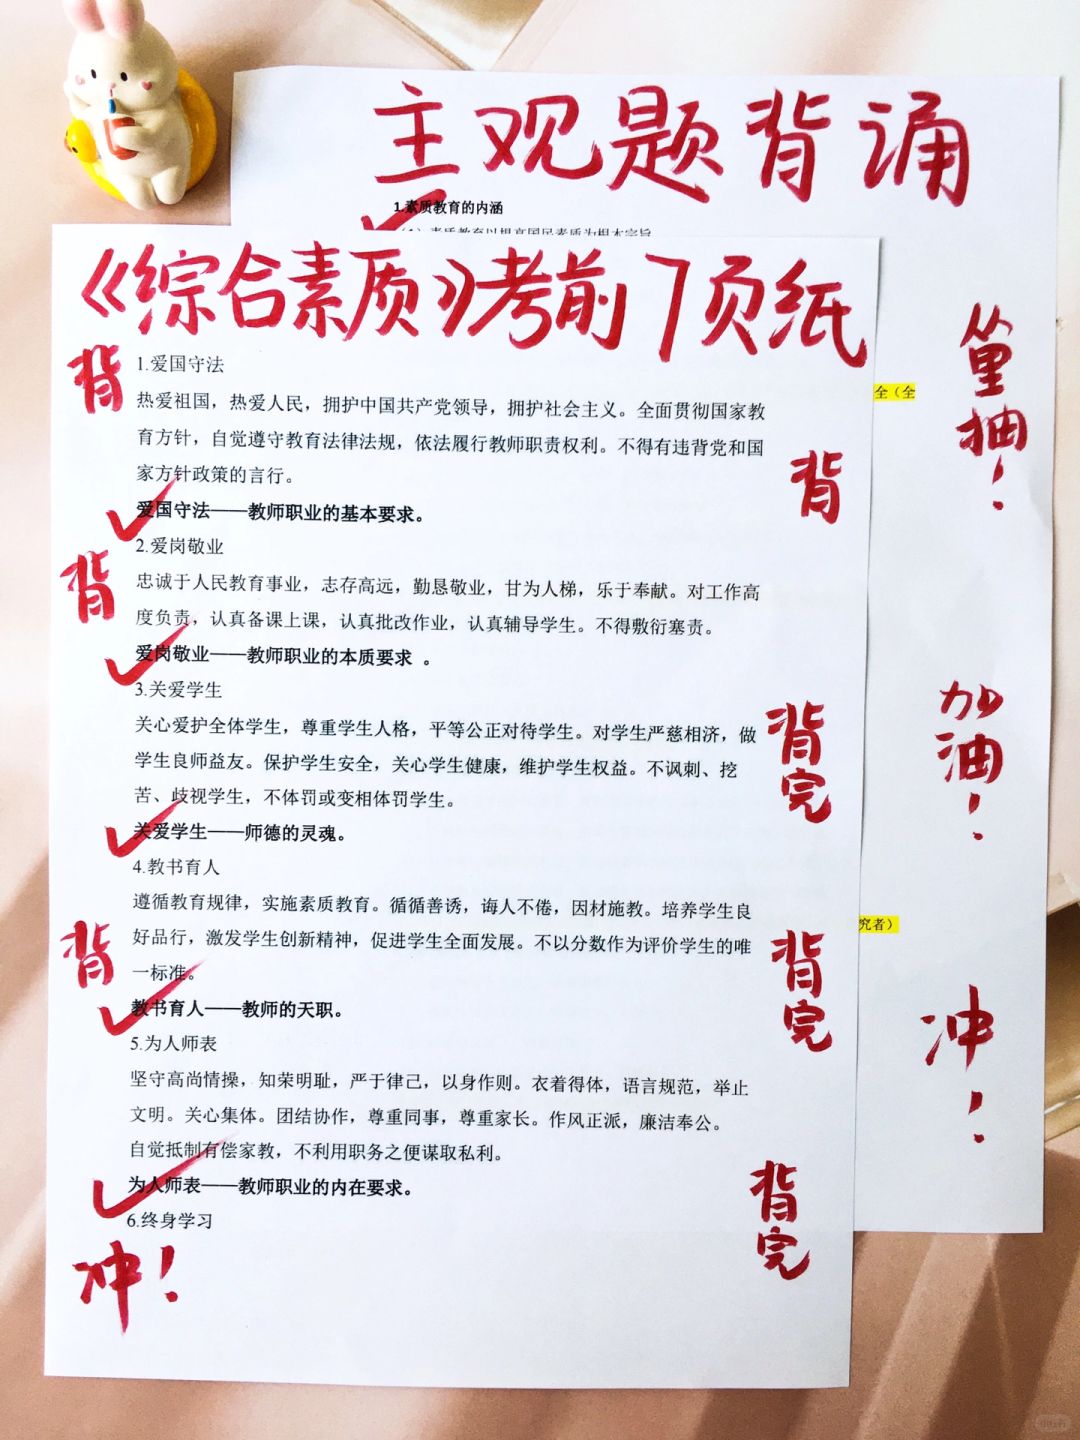 主观题背诵
1.素质教育的内涵
（1）素质教育以提高国民素质为根本宗旨
《综合素质》考前7页纸
背
1.爱国守法
热爱祖国，热爱人民，拥护中国共产党领导，拥护社会主义。全面贯彻国家教
育方针，自觉遵守教育法律法规，依法履行教师职责权利。不得有违背党和国
家方针政策的言行。
爱国守法——教师职业的基本要求。
背
背
2.爱岗敬业
忠诚于人民教育事业，志存高远，勤恳敬业，甘为人梯，乐于奉献。对工作高
度负责，认真备课上课，认真批改作业，认真辅导学生。不得敷衍塞责。
爱岗敬业——教师职业的本质要求 。
3.关爱学生
关心爱护全体学生，尊重学生人格，平等公正对待学生。对学生严慈相济，做
学生良师益友。保护学生安全，关心学生健康，维护学生权益。不讽刺、挖
苦、歧视学生，不体罚或变相体罚学生。
关爱学生——师德的灵魂。
背完
4.教书育人
遵循教育规律，实施素质教育。循循善诱，诲人不倦，因材施教。培养学生良
好品行，激发学生创新精神，促进学生全面发展。不以分数作为评价学生的唯
一标准。
教书育人——教师的天职。
背
背完
5.为人师表
坚守高尚情操，知荣明耻，严于律己，以身作则。衣着得体，语言规范，举止
文明。关心集体。团结协作，尊重同事，尊重家长。作风正派，廉洁奉公。
自觉抵制有偿家教，不利用职务之便谋取私利。
为人师表——教师职业的内在要求。
6.终身学习
背完
冲！
全（全
抽！
加油！
究者）
冲！